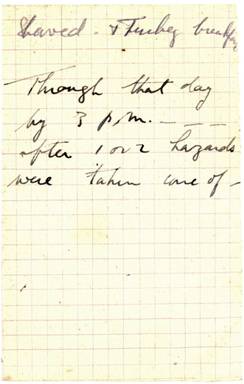 Shaved - & Turkey breakfa
Through that day
by 3 p.m. - - -
after 1 or 2 hazards
were taken care of -